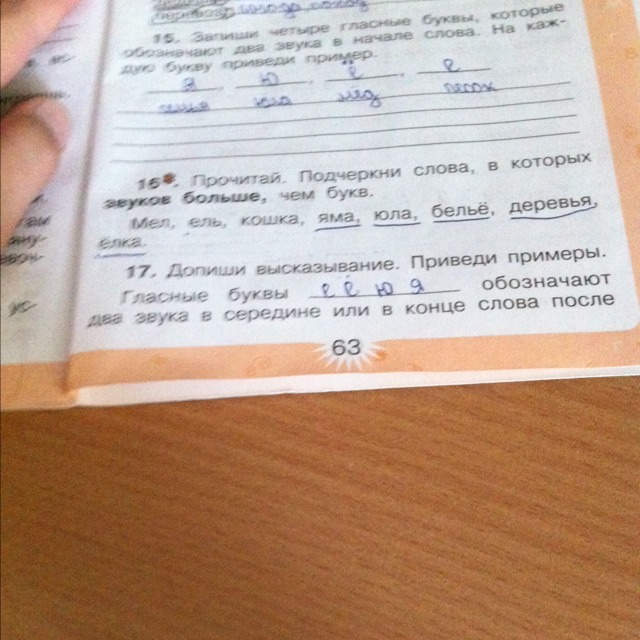 15. Запиши четыре гласные буквы, которые
обозначают два звука в начале слова. На каж-
дую букву приведи пример.
я, ю, ё, е
юла мёд
16*. Прочитай. Подчеркни слова, в которых
звуков больше, чем букв.
Мел, ель, кошка, яма, юла, бельё, деревья,
ёлка.
17. Допиши высказывание. Приведи примеры.
Гласные буквы е ё ю я обозначают
два звука в середине или в конце слова после
63
ус-